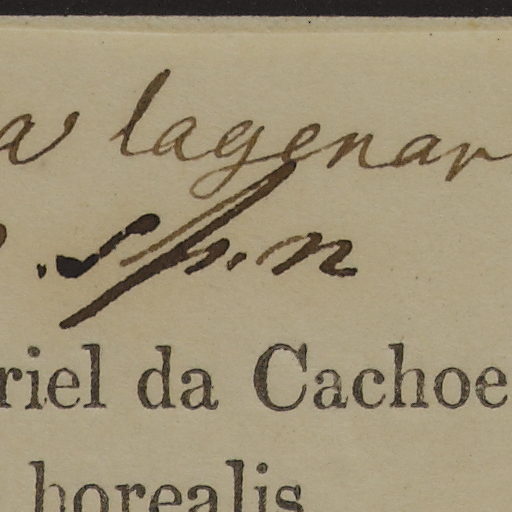 a lagenar
. sp. n
riel da Cachoe
borealis